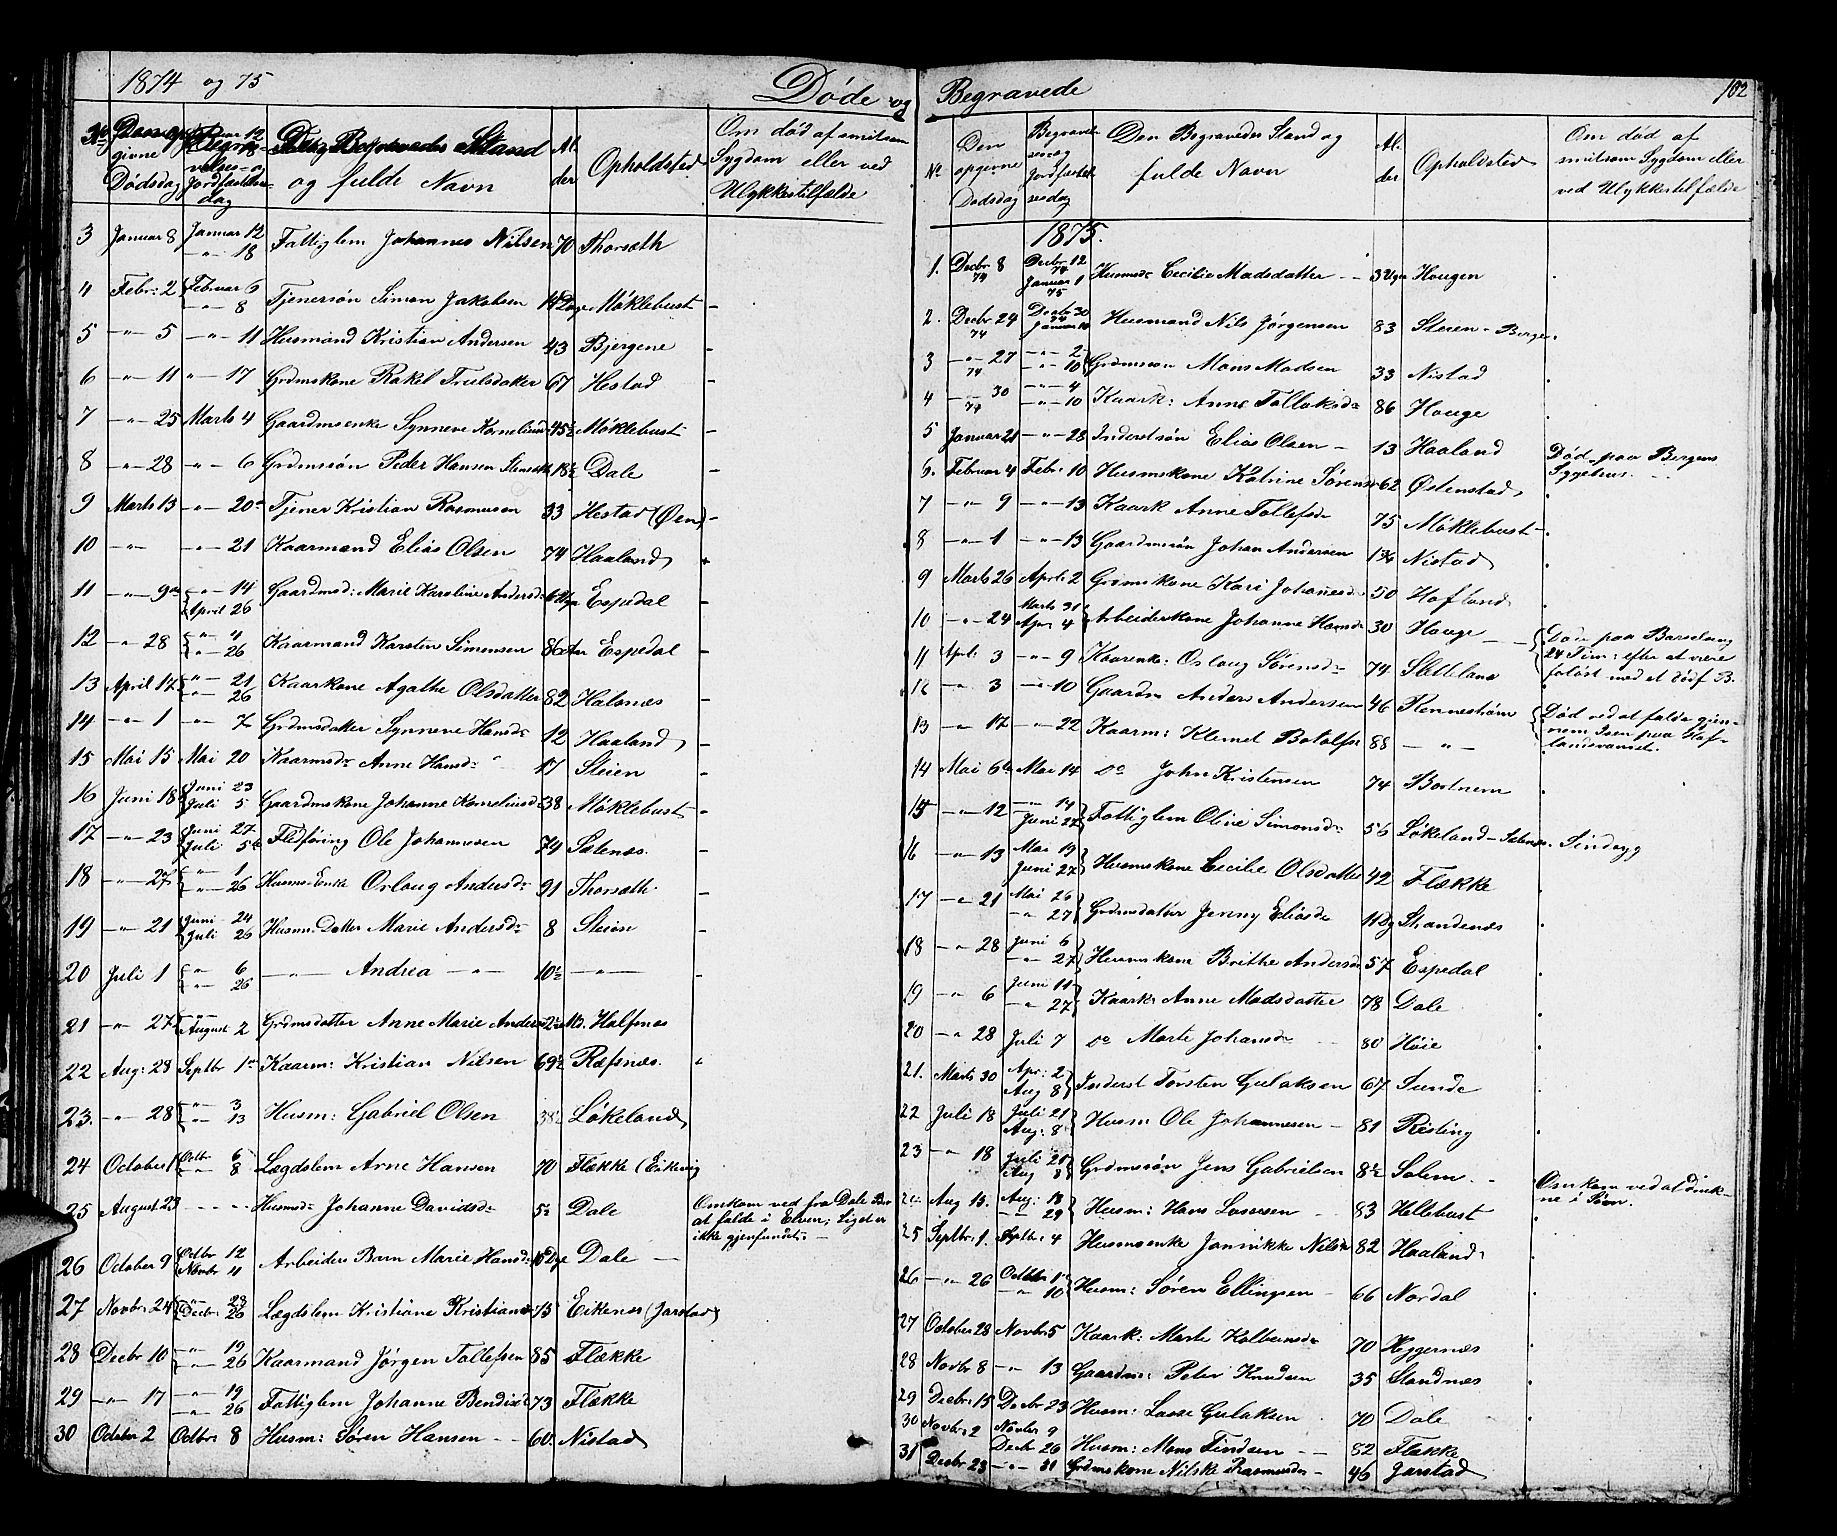 1874 og 75
Døde og
Begravede
102
No
givne
Dødsdag
velses- og
Jordfæstelses-
dag
Stand
og fulde Navn
Al
der
Opholdsted
Om død af smitsom
Sygdom eller ved
Ulykkestilfælde
3 Januar 8 Januar 12 18 Fattiglem Johannes Nilsen 70 Thorsæth
4 Febr: 2 Februar 6 8 Tjenersøn Simon Jakobsen Dage Møklebust
5 " 5 " 11 Husmand Kristian Andersen 43 Bjergene
6 " 11 " 17 Grdmskone Rakel Trulsdatter 67 Hestad
7 " 25 Marts 4 Gaardmsenke Synneve Kornelius 45½ Møklebust
8 " 28 " 6 Grdmssøn Peder Hansen 18½ Dale
9 Marts 13 " 20 Tjener Kristian Rasmusen 33 Hestad (Øen)
10 " " 21 Kaarmand Elias Olsen 74 Haaland
11 " 9 " 14 April 26 Gaardmsd: Marie Karoline Andersd: Espedal
12 " 28 " 4 " 26 Kaarmand Karsten Simonsen 86 Espedal
13 April 14 " 21 " 26 Kaarkone Agathe Olsdatter 82 Halsnæs
14 " 1 " 7 Grdmsdatter Synneve Hansd: 12 Haaland
15 Mai 15 Mai 20 Kaarmsdr Anne Hansd: 17 Steien
16 Juni 18 Juni 23 Juli 5 Gaardmskone Johanne Korneliusd: 38 Møklebust
17 " 23 Juni 27 Juli 5 Fledføring Ole Johannesen 74 Salenæs
18 " 27 " 1 " 26 Husms Enke Orlaug Andersdr 91 Thorsæth
19 " 21 Juni 24 Juli 26 Husm: Datter Marie Andersdr 8 Steien
20 Juli 1 " 6 " 26 " Andrea " 10½ "
21 " 27 August 2 Grdmsdatter Anne Marie Anders Halsnæs
22 Aug: 23 Septbr 1 Kaarm: Kristian Nilsen 69½ Ræfsnæs
23. " 28 " 3 " 13 Husm: Gabriel Olsen 38½ Løkeland
24 October 1 Octbr 6 " 8 Lægdslem Arne Hansen 70 Flække (Eikevig
25 August 23 Husmsdr Johanne Davidsdr 5½ Dale Omkom ved fra Dale Bro
at falde i Elven; Liget er
ikke gjenfundet.
26 October 9 Octbr 12 Novbr 11 Arbeiders Barn Marie Hansdr Dage Dale
27 Novbr 24 " 28 Decbr 26 Lægdslem Kristiane Kristians 75 Eikenes (Jarstad)
28 Decbr 10 " 19 " 26 Kaarmand Jørgen Tollefsen 85 Flække
29 " 17 " 19 " 26 Fattiglem Johanne Bendixd 73 Flække
30 October 2 Octbr 8 Husm: Søren Hansen 60 Nistad
No
Den
opgivne
Dødsdag
Begravel-
ses og
Jordfæstel-
sesdag
Den Begravedes Stand og
fulde Navn
Al.
der
Opholdsted
Om død af
smitsom Sygdom eller
ved Ulykkestilfælde
1875.
1. Decbr 8 74 Decbr 12 74 Januar 1 75 Husmsdr Cecilia Madsdatter 3 Ugr Hougen
2. Decbr 24 74 Decbr 30 74 Januar 10 Husmand Nils Jørgensen 83 Steien - Bergen
3 " 27 74 " 2 " 10 Grdmssøn Mons Madsen 33 Nistad
4 " 30 74 " 4 " 10 Kaark: Anne Tollaksdr 86 Houge
5 Januar 21 " 28 Inderstsøn Elias Olsen 13 Haaland Død paa Bergens
Sygehus.
6. Februar 4 Febr: 10 Husmskone Katrine Sørensdr 62 Østenstad
7 " 9 " 13 Kaark Anne Tollefsdr 75 Møklebust
8 " 1 " 13 Gaardmssøn Johan Andersen Nistad
9 Marts 26 April 2 Grdmskone Kari Johannesd: 50 Hofland
10 " 24 Marts 31 Apr: 4 Arbeiderskone Johanne Hansdr 30 Houge Død paa Barselseng
24 Tim: efter at være
forløst med et dødf B.
11 April 3 " 9 Kaarenke: Orlaug Sørensdr 74 Slettene
12 " 3 " 10 Gaardm Anders Andersen 46 Rennestrøm Død ved at falde gjen-
nem Isen paa Hof-
landsvannet.
13 " 17 " 22 Kaarm: Klemet Botolfsen 88 "
14 Mai 6 Mai 14 Do John Kristensen 74 Bortnem
15 " 12 " 14 Juni 27 Fattiglem Oline Simonsdr 56 Løkeland - Salenæs Sindsyg
16 " 13 Mai 19 Juni 27 Husmskone Cecilie Olsdatter 42 Flække
17 " 21 Mai 26 " 27 Grdmsdatter Jenny Eliasdr Strandenæs
18 " 28 Juni 6 " 27 Husmskone Brithe Andersdr 57 Espedal
19 " 6 Juni 11 " 27 Kaark: Anne Madsdatter 78 Dale
20 " 28 Juli 7 Do Marte Johansdr 80 Høie
21. Marts 30 Apr: 2 Aug 8 Inderst Torsten Gulaksen 67 Sunde
22 Juli 18 Juli 21 Aug: 8 Husm Ole Johannesen 81 Risting
23 " 18 Juli 21 Aug 8 Grdmssøn Jens Gabrielsen 8½ Solem Omkom ved at druk-
ne i Søen.
24 Aug 15. Aug: 18 " 29 Husm: Hans Lassesen 83 Hellebust
25 Septbr: 1. Septbr: 4 Husmsenke Jannikke Nilsd 82 Haaland
26 " 26 Octbr 1 " 10 Husm: Søren Ellingsen 66 Nordal
27 October 28 Novbr 5 Kaark: Marte Kolbensdr 70 Heggernæs
28 Novbr 8 " 13 Gaardm: Peter Knudsen 35 Standnæs
29 Decbr: 15 Decbr 23 Husm: Lasse Gulaksen 70 Dale
30 Novbr: 2 Novbr 9 Decbr 26 Husm: Mons Findsen 82 Flække
31 Decbr 23 " 31 Grdmskone Nilske Rasmusdr 46 Jarstad